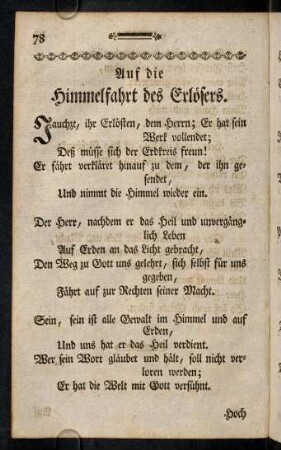 78
Auf die
Himmelfahrt des Erlösers.
Jauchzt, ihr Erlösten, dem Herrn; Er hat sein
Werk vollendet;
Deß müsse sich der Erdkreis freun!
Er fährt verkläret hinauf zu dem, der ihn ge-
sendet,
Und nimmt die Himmel wieder ein.
Der Herr, nachdem er das Heil und unvergäng-
lich Leben
Auf Erden an das Licht gebracht,
Den Weg zu Gott uns gelehrt, sich selbst für uns
gegeben,
Fährt auf zur Rechten seiner Macht.
Sein, sein ist alle Gewalt im Himmel und auf
Erden,
Und uns hat er das Heil verdient.
Wer sein Wort gläubet und hält, soll nicht ver-
loren werden;
Er hat die Welt mit Gott versühnt.
Hoch